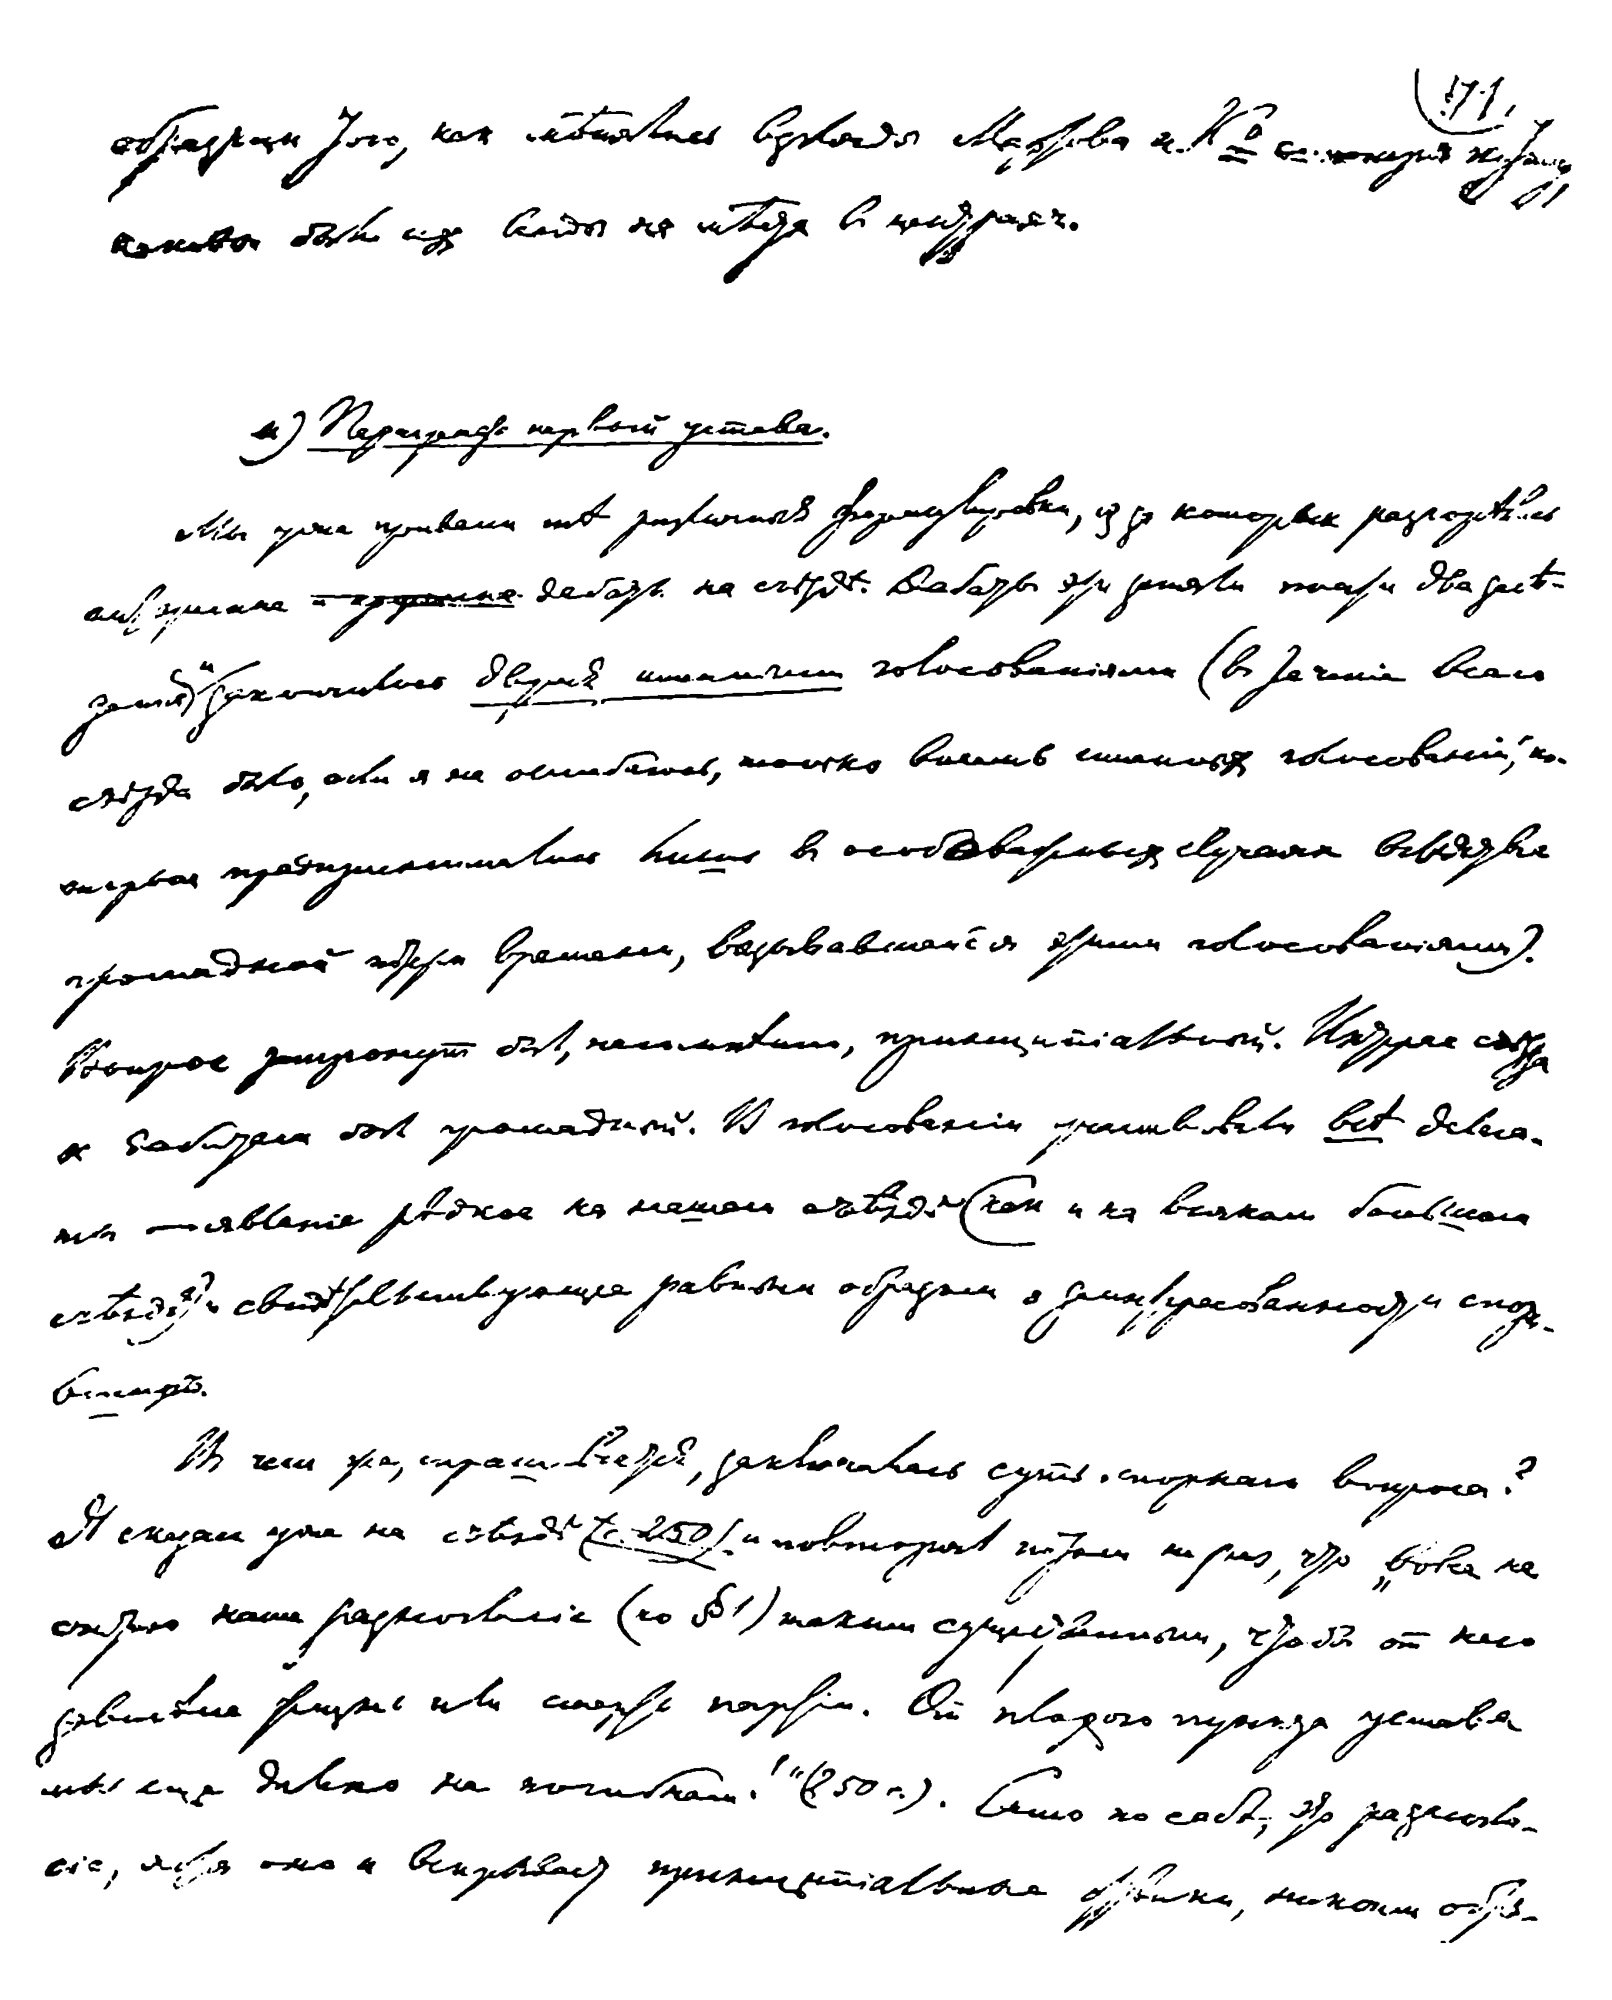 того, как мѣнялись взгляды Мартова и Кº
каковы были их на
и) Параграф первый устава.
Мы уже привели тѣ различныя формулировки, из за которых разгорѣлись
интересные дебаты на съѣздѣ. Дебаты эти заняли почти два засѣ-
данія и закончились двумя именными голосованіями (в теченіе всего
съѣзда было, если я не ошибаюсь, только восемь именных голосованій, ко-
торыя предпринимались лишь в особо важных случаях вслѣдствіе
громадной потери времени, вызывавшейся этими голосованіями).
Вопрос затронут был, несомнѣнно, принципіальный. Интерес съѣзда
к дебатам был громадный. В голосованіи участвовали всѣ делега-
ты — явленіе рѣдкое на нашем съѣздѣ (как и на всяком большом
съѣздѣ) и свидѣтельствующее равным образом о заинтересованности спори-
вших.
В чем же, спрашивается, заключалась суть спорнаго вопроса?
Я сказал уже на съѣздѣ (с. 250) и повторял потом не раз, что „вовсе не
считаю наше разногласіе (по § 1) таким существенным, чтобы от него
зависѣла жизнь или смерть партіи. От плохого пункта устава
мы еще далеко не погибнем!“ (250 с.). Само по себѣ, это разногла-
сіе, хотя оно и вскрывает принципіальные оттѣнки, никоим обра-